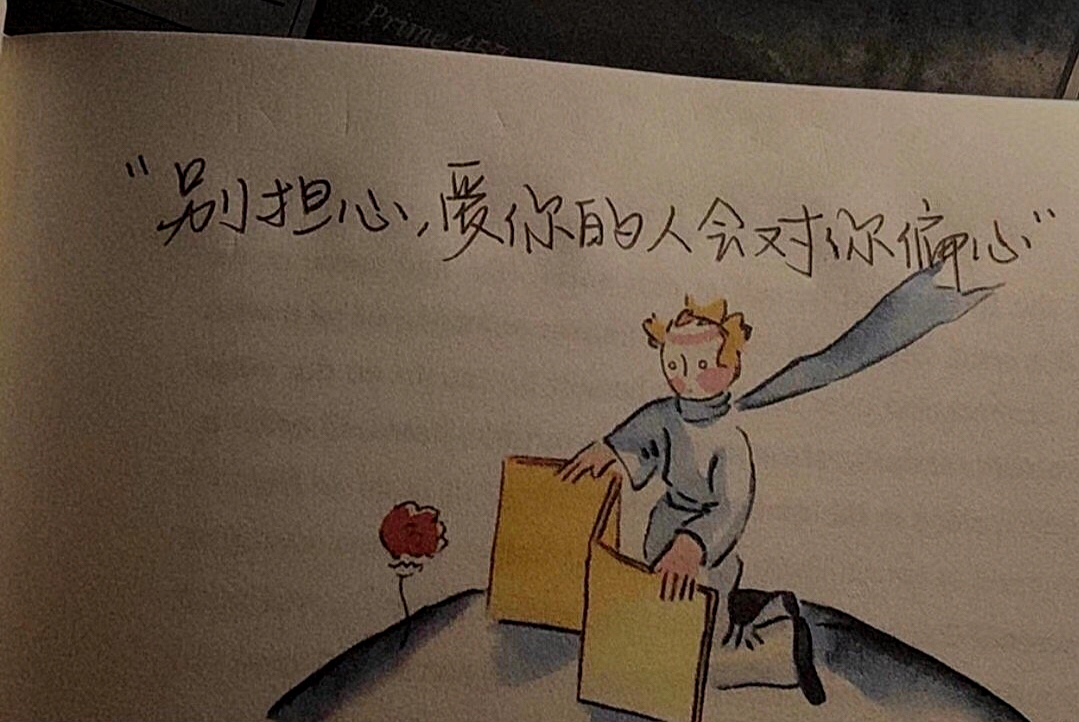 Prime 457
“别担心，爱你的人会对你偏心”